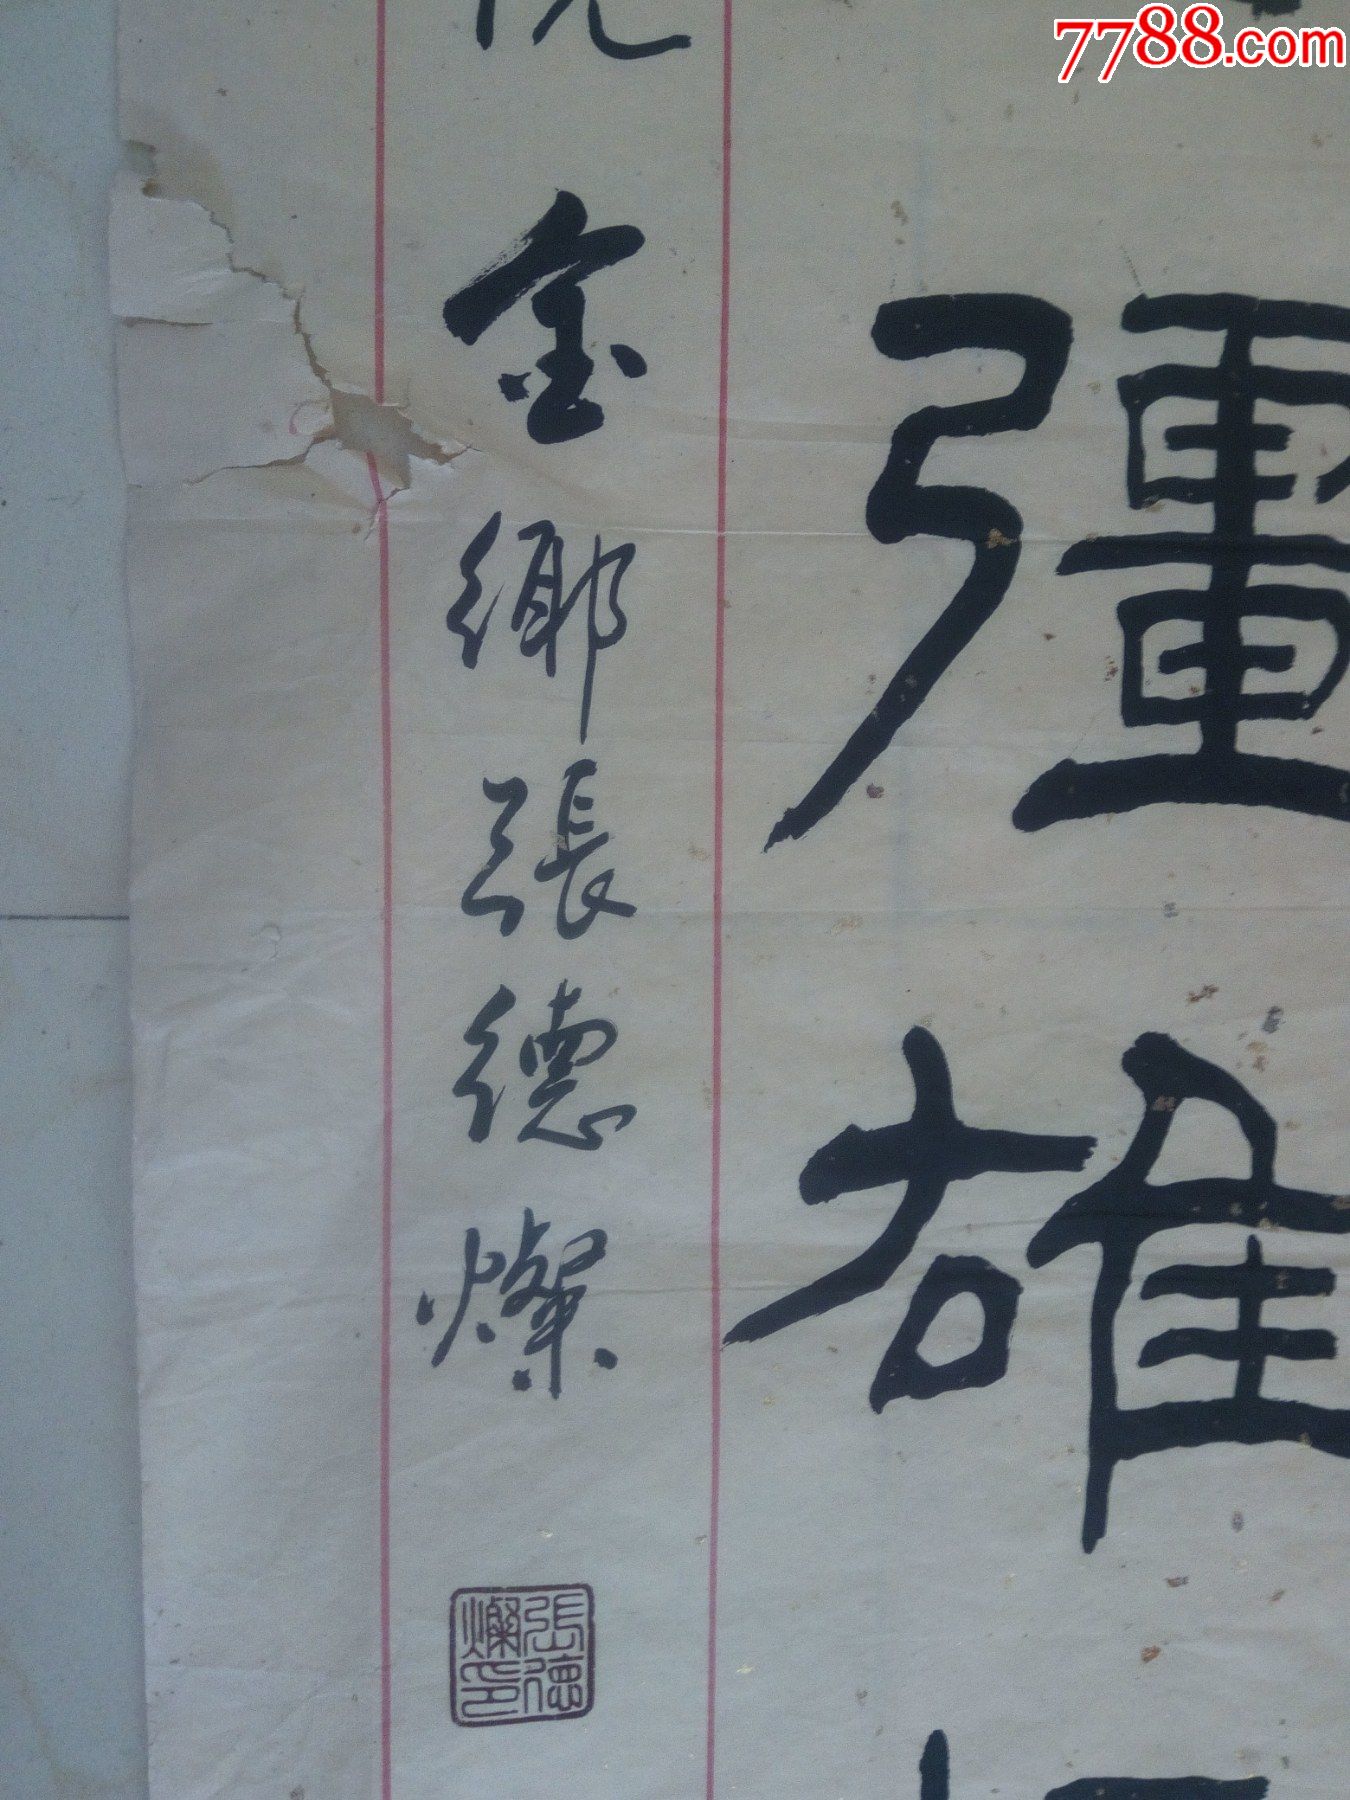 7788.com
彊
雄
金鄉張德燦
張德燦印